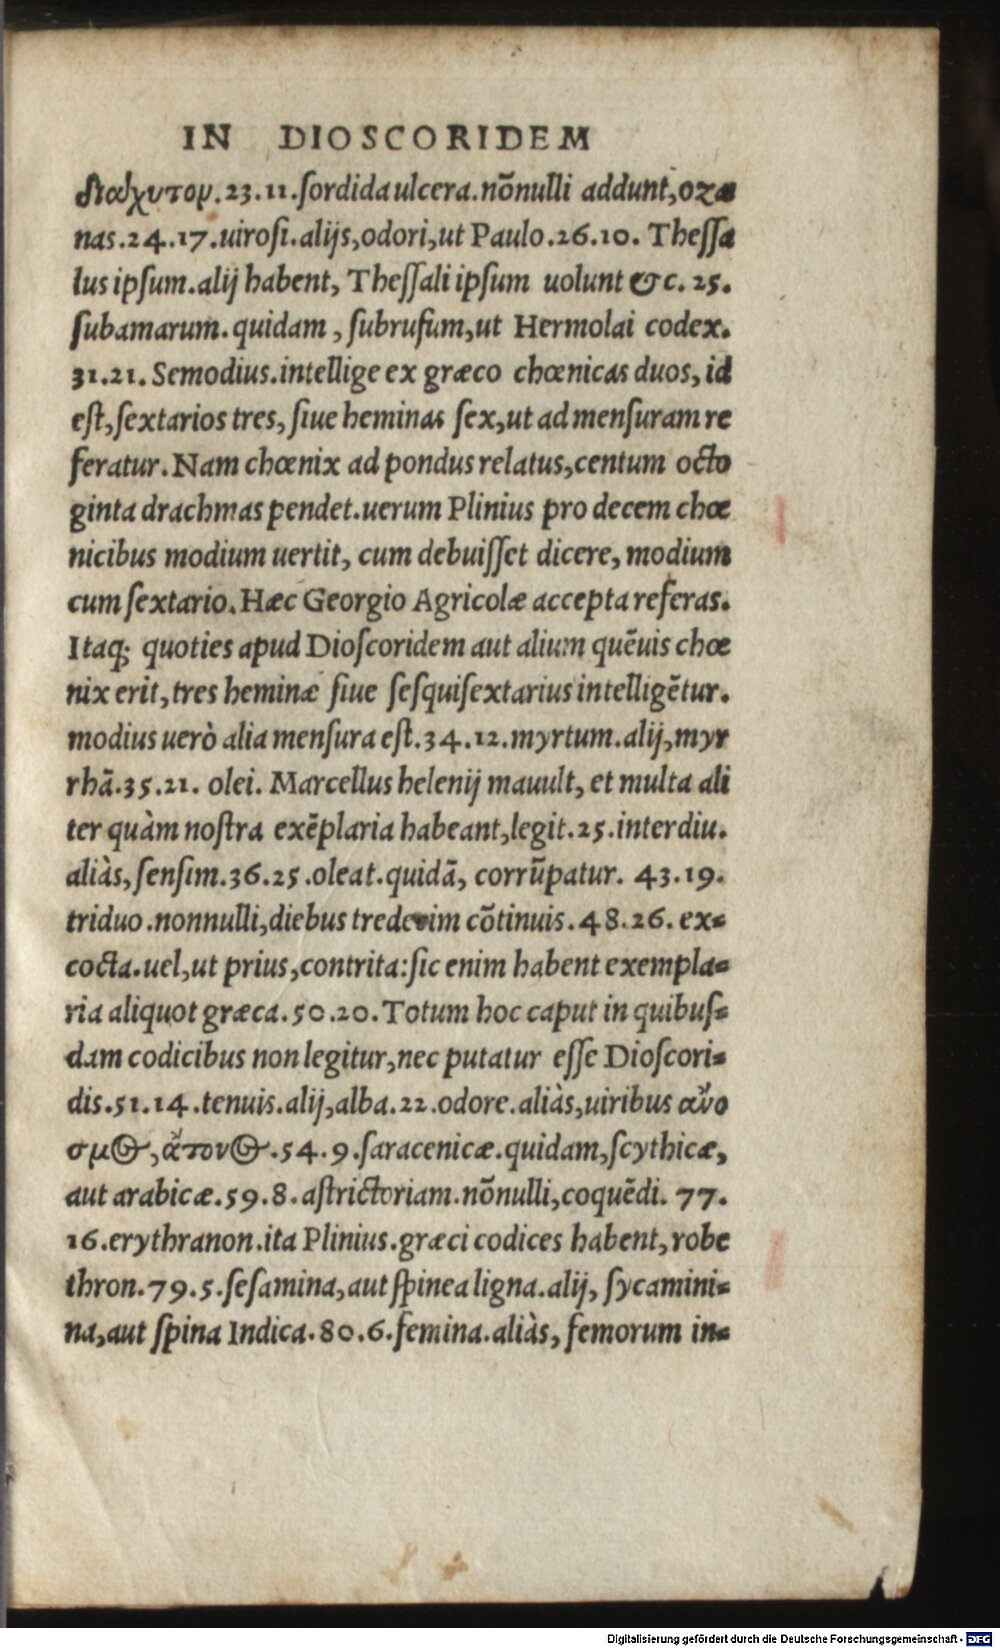 IN DIOSCORIDEM
διάχυτον.23.11.ſordida ulcera.nōnulli addunt,ozæ
nas.24.17.uiroſi.alijs,odori,ut Paulo.26.10. Theſſa
lus ipſum.alij habent, Theſſali ipſum uolunt &c. 25.
ſubamarum.quidam , ſubrufum,ut Hermolai codex.
31.21. Semodius.intellige ex græco chœnicas duos, id
eſt,ſextarios tres, ſiue heminas ſex,ut ad menſuram re
feratur. Nam chœnix ad pondus relatus,centum octo
ginta drachmas pendet.uerum Plinius pro decem chœ
nicibus modium uertit, cum debuiſſet dicere, modium
cum ſextario. Hæc Georgio Agricolæ accepta referas.
Itaq; quoties apud Dioſcoridem aut alium quēuis chœ
nix erit, tres heminæ ſiue ſeſquiſextarius intelligētur.
modius uerò alia menſura eſt.34.12.myrtum.alij,myr
rhā.35.21. olei. Marcellus helenij mauult, et multa ali
ter quàm noſtra exēplaria habeant,legit.25.interdiu.
aliàs,ſenſim.36.25.oleat.quidā, corrūpatur. 43.19.
triduo.nonnulli,diebus tredecim cōtinuis.48.26. ex-
cocta.uel,ut prius,contrita:ſic enim habent exempla-
ria aliquot græca.50.20.Totum hoc caput in quibuſ-
dam codicibus non legitur,nec putatur eſſe Dioſcori-
dis.51.14.tenuis.alij,alba.22.odore.aliàs,uiribus ἄνο
σμος,ἄτονος.54.9.ſaracenicæ.quidam,ſcythicæ,
aut arabicæ.59.8.aſtrictoriam.nōnulli,coquēdi. 77.
16.erythranon.ita Plinius.græci codices habent,robe
thron.79.5.ſeſamina,aut ſpinea ligna.alij, ſycamini-
na,aut ſpina Indica.80.6.femina.aliàs, femorum in-
Digitalisierung gefördert durch die Deutsche Forschungsgemeinschaft - DFG